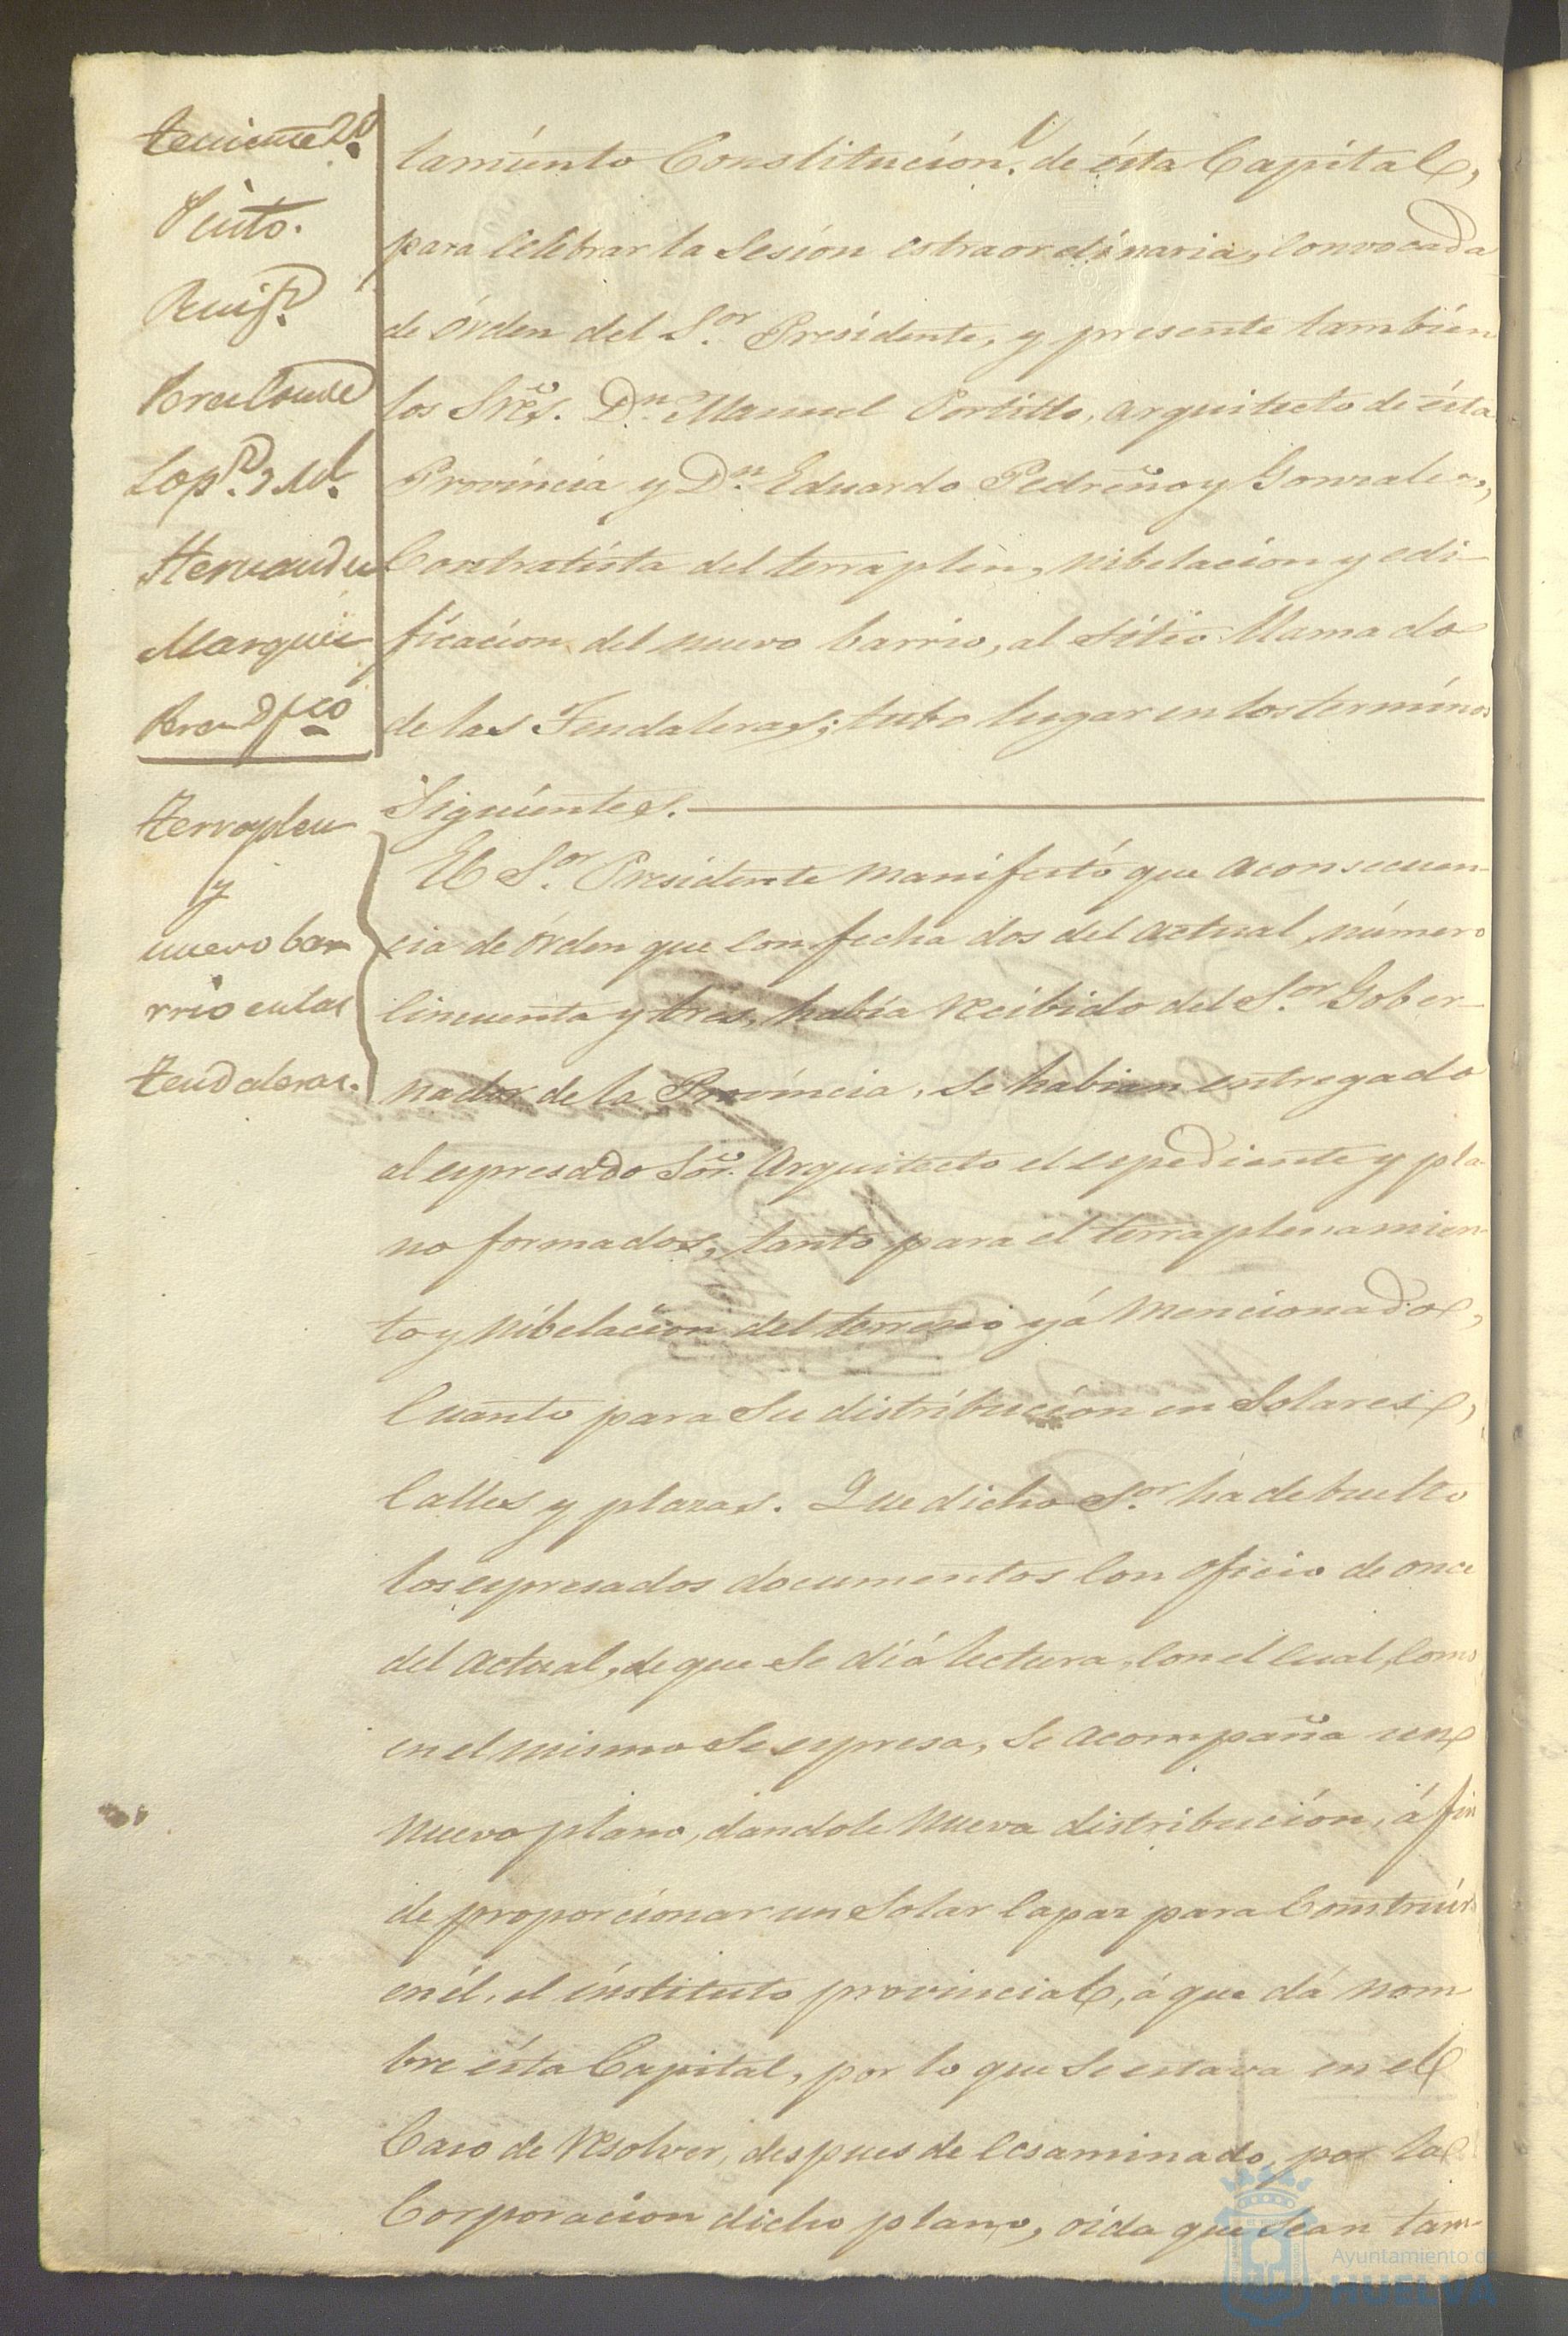 teniente 2º
Pinto.
Ruiz
Perez Conde
Lopz. D. Ml.
Hernandez
Marquez
Perez D. Fco
tamiento Constitucionl. de ésta Capital,
para celebrar la sesion estraordinaria, convocada
de órden del Sor. Presidente, y presente tambien
los Sres. Dn. Manuel Portillo, arquitecto de ésta
Provincia y Dn. Eduardo Pedreño y Gonzalez,
Contratista del terraplen, nibelacion y edi-
ficacion del nuevo barrio, al sitio llamado
de las Tendaleras; tubo lugar en los términos
Siguientes.
Terraplen
y
nuevo bar
rrio en las
tendaleras.
El Sor. Presidente manifestó que a consecuen-
cia de órden que con fecha dos del actual, número
cincuenta y tres, habia recibido del Sor. Gober-
nador de la Provincia, se habian entregado
al espresado Sor. Arquitecto el espediente y pla-
no formados, tanto para el terraplenamien-
to y nibelacion del terreno yá mencionado,
cuanto para su distribucion en solares,
calles y plazas. Que dicho Sor. ha debuelto
los espresados documentos con oficio de once
del actual, de que se dió lectura, con el cual, como
en el mismo se espresa, se acompaña un
nuevo plano, dandole nueva distribucion, á fin
de proporcionar un solar capaz para construir
en él, el instituto provincial, á que dá nom-
bre ésta Capital, por lo que se estava en el
caso de resolver, despues de ecsaminado, por la
Corporacion dicho plano, oida que sean tam-
Ayuntamiento de
HUELVA